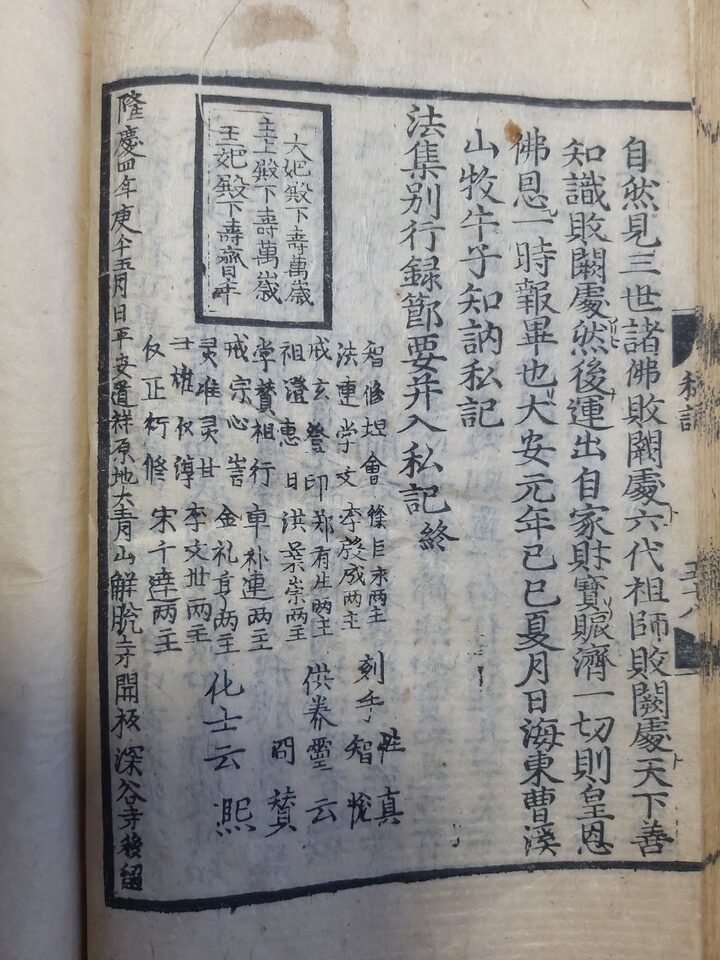 自然見三世諸佛敗闕處六代祖師敗闕處天下善
知識敗闕處然後運出自家財寶賑濟一切則皇恩
佛恩一時報畢也大安元年己巳夏月日海東曹溪
山牧牛子知訥私記
法集别行録節要并入私記 終
大妃殿下壽萬歲
主上殿下壽萬歲
王妃殿下壽齊年
智修 坦會 徐巨末两主
法連 学文 李彥成两主 刻手 性真
戒玄 登印 郑有生两主 智悅
祖澄 惠日 洪景崇两主 供养 靈云
学贊 祖行 車补連两主 冏贊
戒宗 心訔 金礼亨两主 化士云熙
灵准 灵甘 李文世两主
士雄 仅淳 宋千達两主
仅正 行修
隆慶四年庚午五月日平安道祥原地大青山解脫寺開板深谷寺移留
私記
五十八